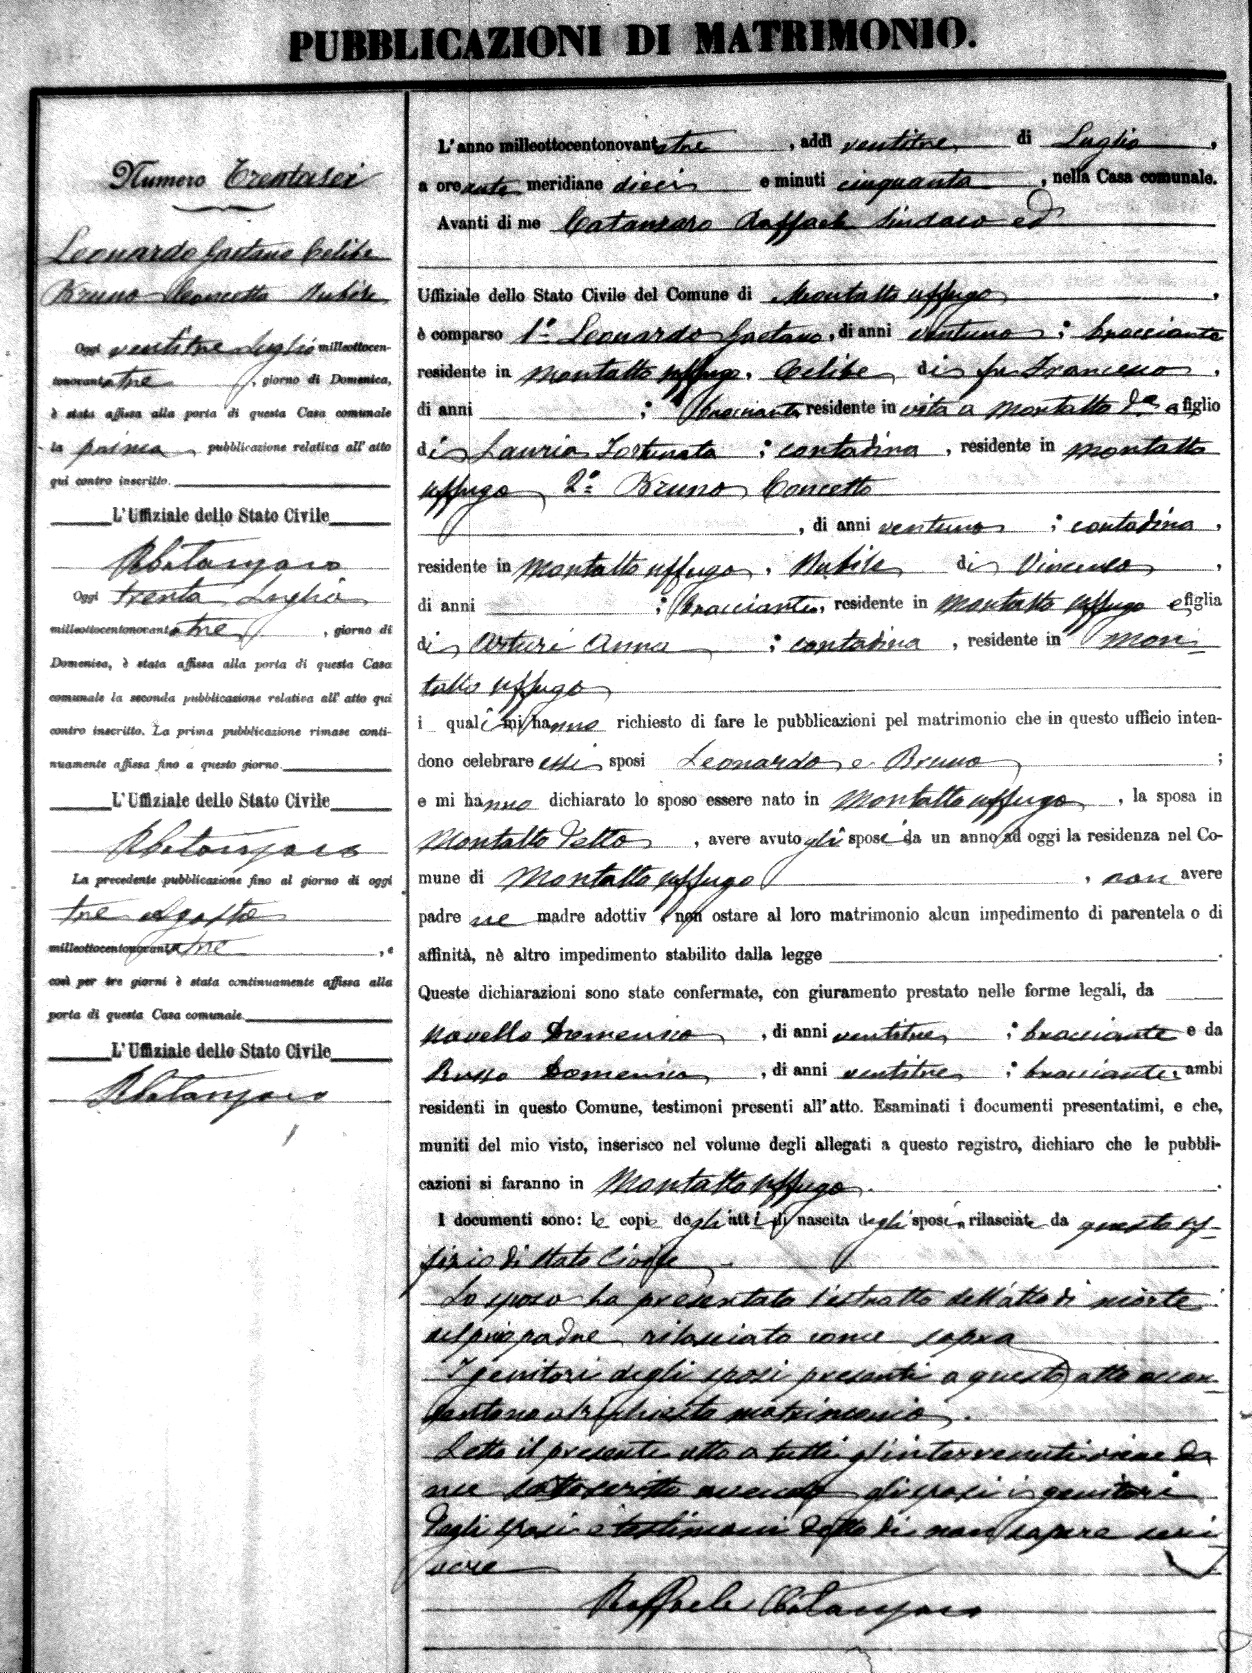 PUBBLICAZIONI DI MATRIMONIO.
Numero Trentasei
Leonardo Gaetano Celibe
Bruno Concetta Nubile
Oggi ventitre Luglio milleottocen-
tonovantatre, giorno di Domenica,
è stata affissa alla porta di questa Casa comunale
la prima pubblicazione relativa all'atto
qui contro inscritto.
L'Uffiziale dello Stato Civile
RCatanzaro
Oggi trenta Luglio
milleottocentonovantatre, giorno di
Domenica, è stata affissa alla porta di questa Casa
comunale la seconda pubblicazione relativa all'atto qui
contro inscritto. La prima pubblicazione rimase conti-
nuamente affissa fino a questo giorno.
L'Uffiziale dello Stato Civile
RCatanzaro
La precedente pubblicazione fino al giorno di oggi
tre Agosto
milleottocentonovantatre, e
così per tre giorni è stata continuamente affissa alla
porta di questa Casa comunale.
L'Uffiziale dello Stato Civile
RCatanzaro
L'anno milleottocentonovantatre, addì ventitre di Luglio,
a ore ante meridiane dieci e minuti cinquanta, nella Casa comunale.
Avanti di me Catanzaro Raffaele Sindaco ed
Uffiziale dello Stato Civile del Comune di Montalto uffugo,
è comparso 1º Leonardo Gaetano, di anni ventuno; bracciante
residente in Montalto uffugo, Celibe di fu Francesco,
di anni ; bracciante residente in vita a Montalto do e figlio
di Lauria Fortunata; contadina, residente in Montalto
uffugo 2º Bruno Concetta
, di anni ventuno; contadina,
residente in Montalto uffugo, Nubile di Vincenzo,
di anni ; bracciante, residente in Montalto uffugo e figlia
di Arturi Anna; contadina, residente in Mon-
talto uffugo
i quali mi hanno richiesto di fare le pubblicazioni pel matrimonio che in questo ufficio inten-
dono celebrare essi sposi Leonardo e Bruno;
e mi hanno dichiarato lo sposo essere nato in Montalto uffugo, la sposa in
Montalto detto, avere avuto gli sposi da un anno ad oggi la residenza nel Co-
mune di Montalto uffugo, non avere
padre ne madre adottivi non ostare al loro matrimonio alcun impedimento di parentela o di
affinità, nè altro impedimento stabilito dalla legge.
Queste dichiarazioni sono state confermate, con giuramento prestato nelle forme legali, da
Novello Domenico, di anni ventitre; bracciante e da
Russo Domenico, di anni ventitre; bracciante, ambi
residenti in questo Comune, testimoni presenti all'atto. Esaminati i documenti presentatimi, e che,
muniti del mio visto, inserisco nel volume degli allegati a questo registro, dichiaro che le pubbli-
cazioni si faranno in Montalto uffugo.
I documenti sono: le copie degli atti di nascita degli sposi, rilasciate da questo uf-
fizio di Stato Civile.
Lo sposo ha presentato l'estratto dell'atto di morte
del suo padre rilasciato come sopra
I genitori degli sposi presenti a questo atto accon-
sentono al richiesto matrimonio.
Letto il presente atto a tutti gl'intervenuti viene da
me sottoscritto avendo gli sposi i genitori
degli sposi e testimoni detto di non sapere scri
vere
Raffaele Catanzaro